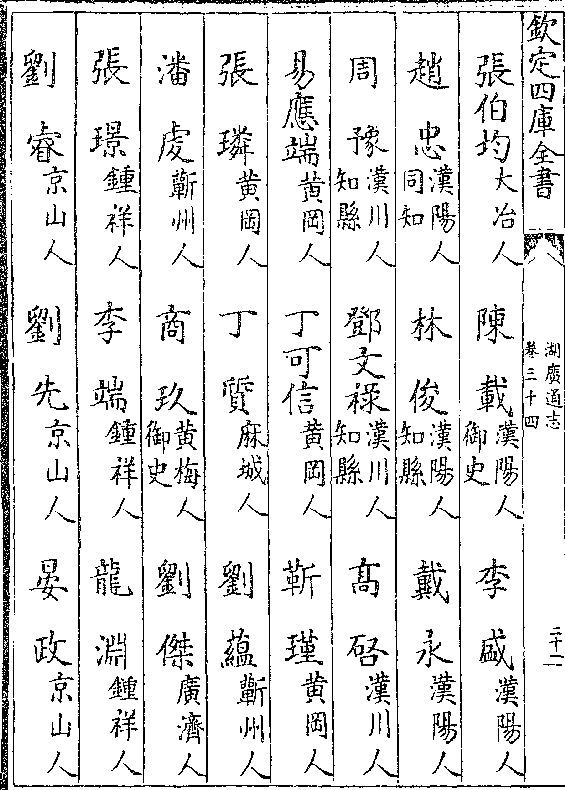 欽定四庫全書
湖廣通志
卷三十四
二十一
張伯均大冶人 陳載漢陽人御史 李盛漢陽人
趙忠漢陽人同知 林俊漢陽人知縣 戴永漢陽人
周豫漢川人知縣 鄧文祿漢川人知縣 高啓漢川人
易應端黃岡人 丁可信黃岡人 靳瑾黃岡人
張璘黃岡人 丁質麻城人 劉蘊蘄州人
潘虔蘄州人 商玖黃梅人御史 劉傑廣濟人
張璟鍾祥人 李端鍾祥人 龍淵鍾祥人
劉睿京山人 劉先京山人 晏政京山人